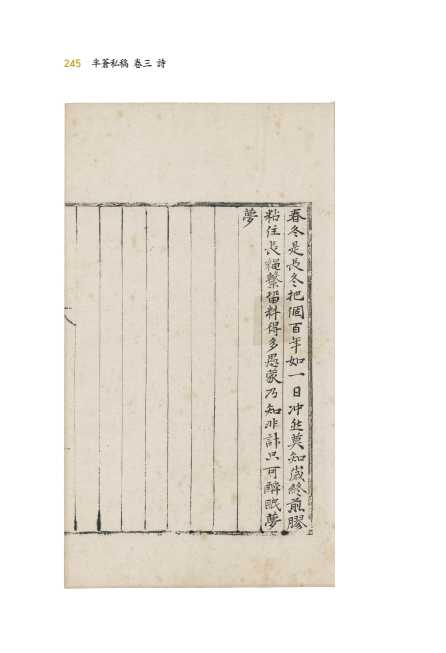 245 半蒼私稿 卷三 詩
春冬是長冬把個百年如一日冲然莫知歲終煎膠
粘住長繩繫留料得多愚蒙乃知非計只可醉眠夢
夢